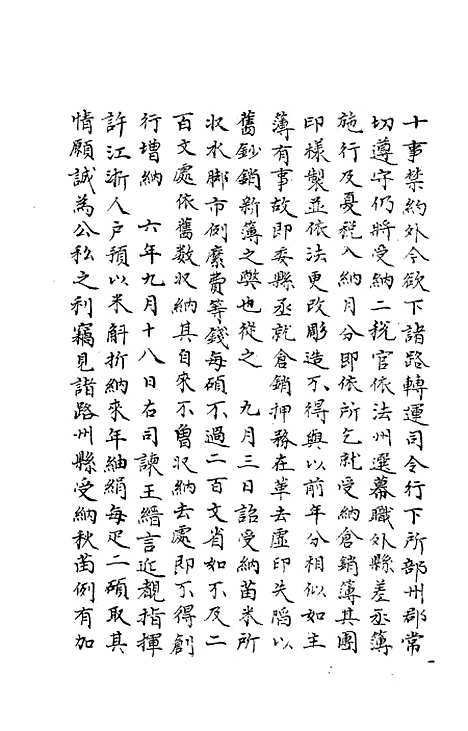 十事禁約外今欲下諸路轉運司令行下所部州郡常
切遵守仍將受納二稅官依法州選幕職外縣差丞簿
施行及夏稅入納月分即依所乞就受納倉銷簿其團
印樣製並依法更改彫造不得與以前年分相似如主
簿有事故即委縣丞就倉銷押務在革去虛印失陷以
舊鈔銷新簿之弊也從之　九月三日詔受納苗米所
収水脚市例縻費等錢每碩不過二百文省如不及二
百文處依舊數収納其自來不曾収納去處即不得創
行增納　六年九月十八日右司諫王縉言近覩指揮
許江浙人戶預以米斛折納來年紬絹每疋二碩取其
情願誠為公私之利竊見諸路州縣受納秋苗例有加